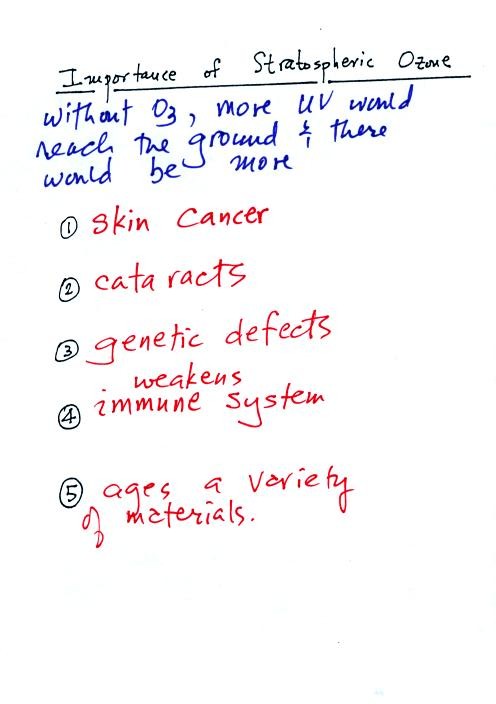 Importance of Stratospheric Ozone
without O3, more UV would
reach the ground & there
would be more
① skin cancer
② cataracts
③ genetic defects
weakens
④ immune system
⑤ ages a variety
of materials.